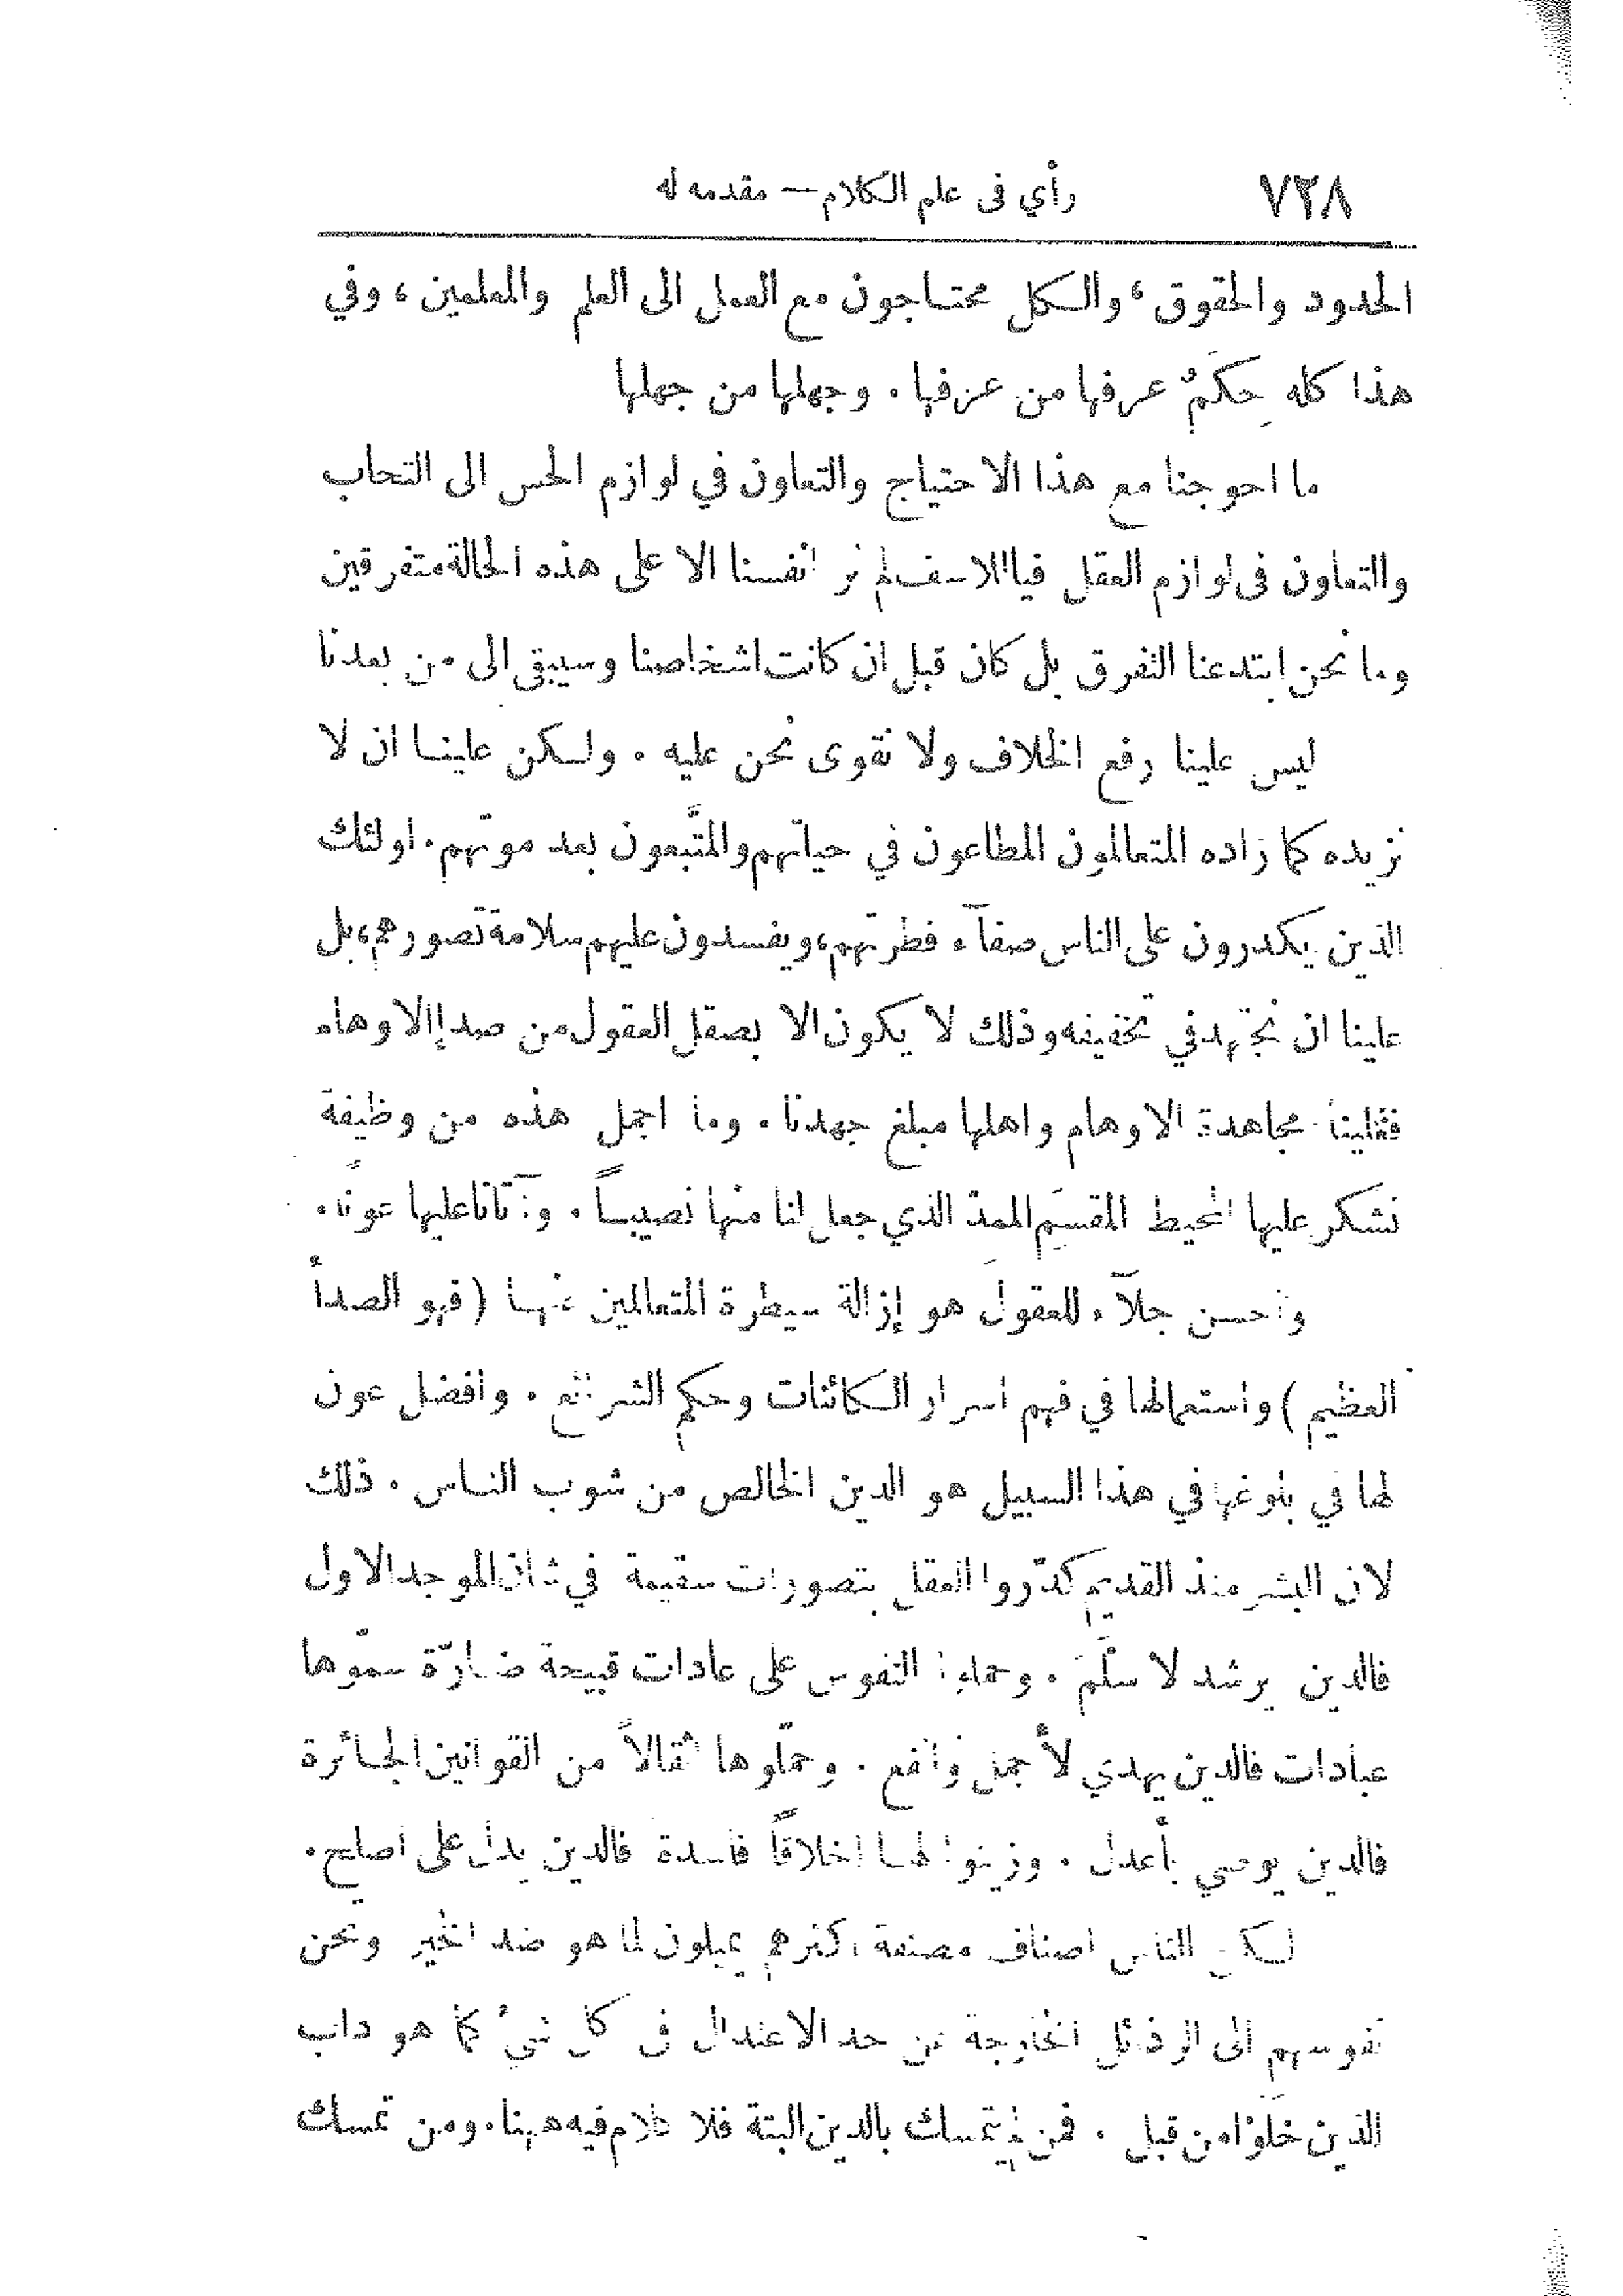 ٧٢٨
رأي فى علم الكلام — مقدمه له
الحدود والحقوق ، والكل محتاجون مع العمل الى العلم والمعلمين ، وفي
هذا كله حِكَمٌ عرفها من عرفها . وجهلها من جهلها
ما احوجنا مع هذا الاحتياج والتعاون في لوازم الحس الى التحاب
والتعاون فى لوازم العقل فيا للاسف لم نر انفسنا الا على هذه الحالة متفرقين
وما نحن ابتدعنا التفرق بل كان قبل ان كانت اشخاصنا وسيبقى الى من بعدنا
ليس علينا رفع الخلاف ولا نقوى نحن عليه . ولكن علينا ان لا
نزيده كما زاده المتعالمون المطاعون في حياتهم والمتَّبعون بعد موتهم . اولئك
الذين يكدرون على الناس صفآء فطرتهم ، ويفسدون عليهم سلامة تصورهم ، بل
علينا ان نجتهد في تخفيفه وذلك لا يكون الا بصقل العقول من صدإ الاوهام
فعلينا مجاهدة الاوهام واهلها مبلغ جهدنا . وما اجمل هذه من وظيفة
نشكر عليها المحيط المقسِّم الممدّ الذي جعل لنا منها نصيباً . وآتانا عليها عوناً .
واحسن جلآء للعقول هو إزالة سيطرة المتعالمين عنها ( فهو الصدأ
العظيم ) واستعمالها في فهم اسرار الكائنات وحكم الشرائع . وافضل عون
لها في بلوغها في هذا السبيل هو الدين الخالص من شوب الناس . ذلك
لان البشر منذ القديم كدّروا العقل بتصورات سقيمة في شأن الموجد الاول
فالدين يرشد لاسلَم . وحملوا النفوس على عادات قبيحة ضارّة سمّوها
عبادات فالدين يهدي لأجمل وانفع . وحمّلوها اثقالاً من القوانين الجائرة
فالدين يوصي بأعدل . وزينوا لها اخلاقاً فاسدة فالدين يدل على اصلح .
لكن الناس اصناف مصنفة اكثرهم يميلون لما هو ضد الخير وتحن
نفوسهم الى الرذائل الخارجة عن حد الاعتدال فى كل شيء كما هو داب
الذين خلوْا من قبل . فمن لم يتمسك بالدين البتة فلا كلام فيه ههنا . ومن تمسك